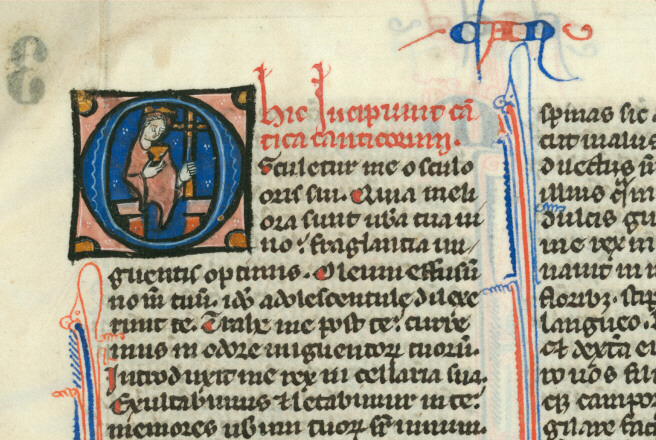 CAN
hic Incipiunt cā
tica canticorum.
Osculetur me osculo
oris sui. Quia meli
ora sunt ub̄a tua ui
no: fraglantia un
guentis optimis. Oleum effusū
nom̄ tuū. idō adolescentule dilexe
runt te. Trahe me post te: curre
mus in odorē unguentoꝝ tuorū.
Introduxit me rex in cellaria sua.
Exultabimus ⁊ letabimur in te:
memores ub̄um tuoꝝ
spinas sic a
dilectus
illius
dulcis gu
me rex in
nauit in
floribꝫ. stip
langueo.
et dext̄a ei
ro uos fili
campor